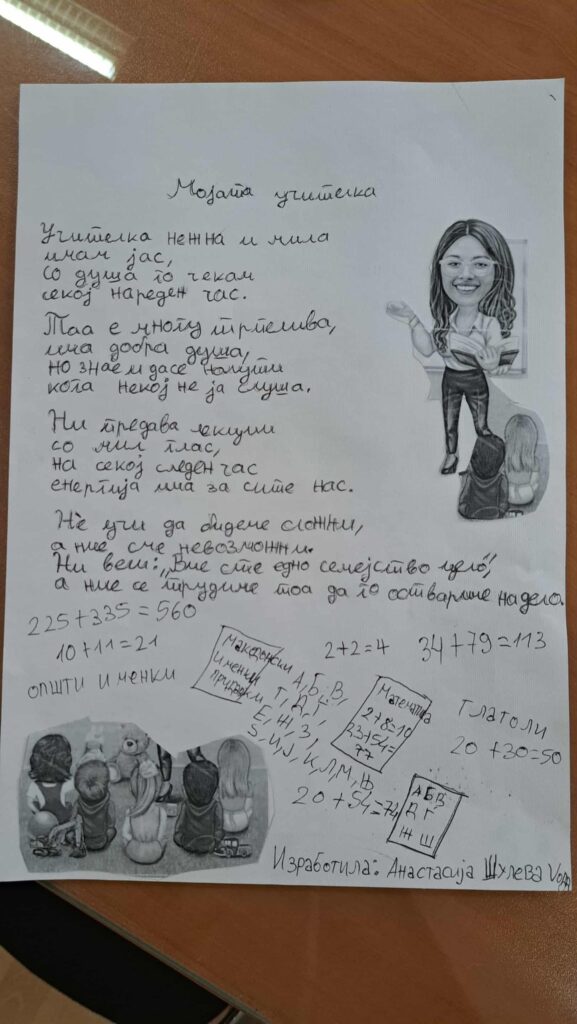 Мојата учителка
Учителка нежна и мила
имам јас,
со душа го чекам
секој нареден час.
Таа е многу трпелива,
има добра душа,
но знае и да се налути
кога некој не ја слуша.
Ни предава лекции
со мил глас,
на секој следен час
енергија има за сите нас.
Нѐ учи да бидеме сложни,
а ние сме невозможни.
Ни вели: „Вие сте едно семејство цело",
а ние се трудиме тоа да го оствариме на дело.
225+335=560
10+11=21
општи именки
Македонски
именки
придавки
А, Б, В,
Г, Д, Ѓ,
Е, Ж, З,
Ѕ, И, Ј, К, Л, М, Њ
2+2=4
34+79=113
Математика
2+8=10
23+54=
77
Глаголи
20+30=50
20+54=74
А Б В
Д Г
Ж Ш
Изработила: Анастасија Шулева Vодд